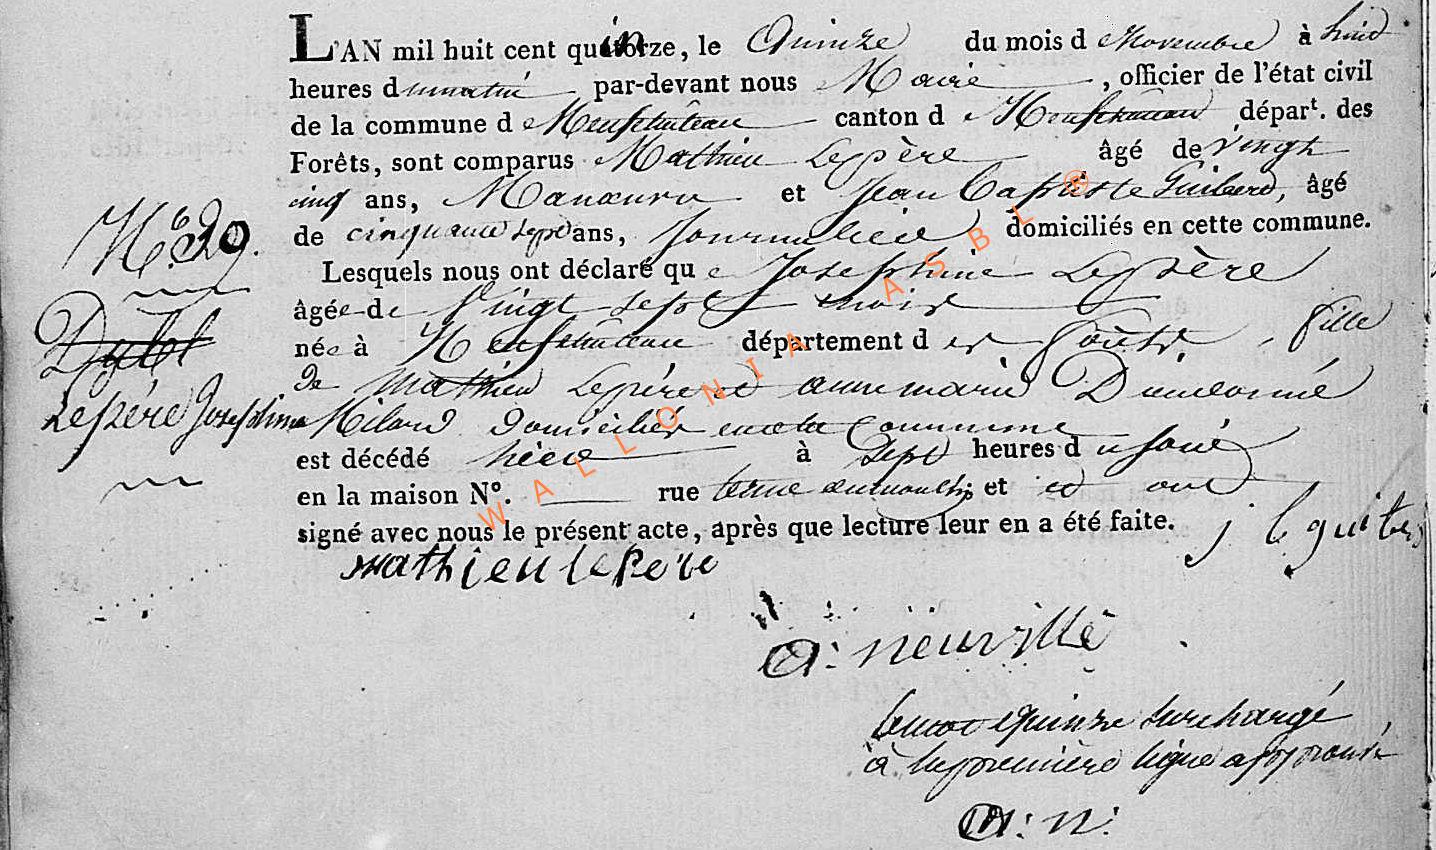 L'AN mil huit cent quinze, le Quinze du mois de Novembre à huit
heures du matin par-devant nous Maire, officier de l'état civil
de la commune de Neufchâteau canton de Neufchateau départ. des
Forêts, sont comparus Mathieu Lepère âgé de vingt
cinq ans, Manœuvre et Jean Baptiste Guibert, âgé
de cinquante sept ans, Journalier domiciliés en cette commune.
Lesquels nous ont déclaré que Josephine Lepère
âgée de Vingt sept mois
née à Neufchâteau département des Forêts, fille
de Mathieu Lepère et anne marie Dieudonné
Milard domiciliés en cette Commune
est décédé hier à Sept heures du soir
en la maison N°. rue terme du moulin et et ont
signé avec nous le présent acte, après que lecture leur en a été faite.
N° 29.
Lepère Josephine
mathieu lepere
j b guibert
A: neuville
le mot quinze surchargé
à la première ligne approuvé
A: N:
WALLONIA ASBL ®